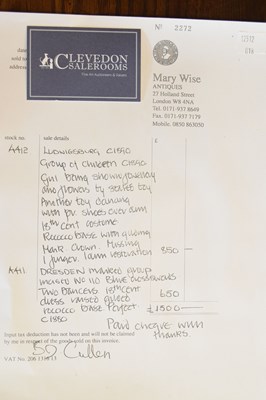 No 2272
CLEVEDON
SALEROOMS
Fine Art Auctioneers & Valuers
Mary Wise
ANTIQUES
27 Holland Street
London W8 4NA
Tel: 0171-937 8649
Fax: 0171-937 7179
Mobile: 0850 863050
stock no. sale details £
A412 LUDWIGSBURG C1880
Group of children C1880
Girl being shown jewellery
and flowers by seated boy
Another boy dancing
with pr. shoes over arm
18th cent costume
Rococo base with gilding
Mark Crown. Missing
1 finger. 1 arm restoration 850
A411 DRESDEN marked group
incised No 110 Blue crossswords
Two Dancers 18th cent 650
dress raised gilded
rococo base Perfect £1500
C1880
Paid cheque with
thanks.
Input tax deduction has not been and will not be claimed
by me in respect of the goods sold on this invoice.
Cullen
V.A.T. No.